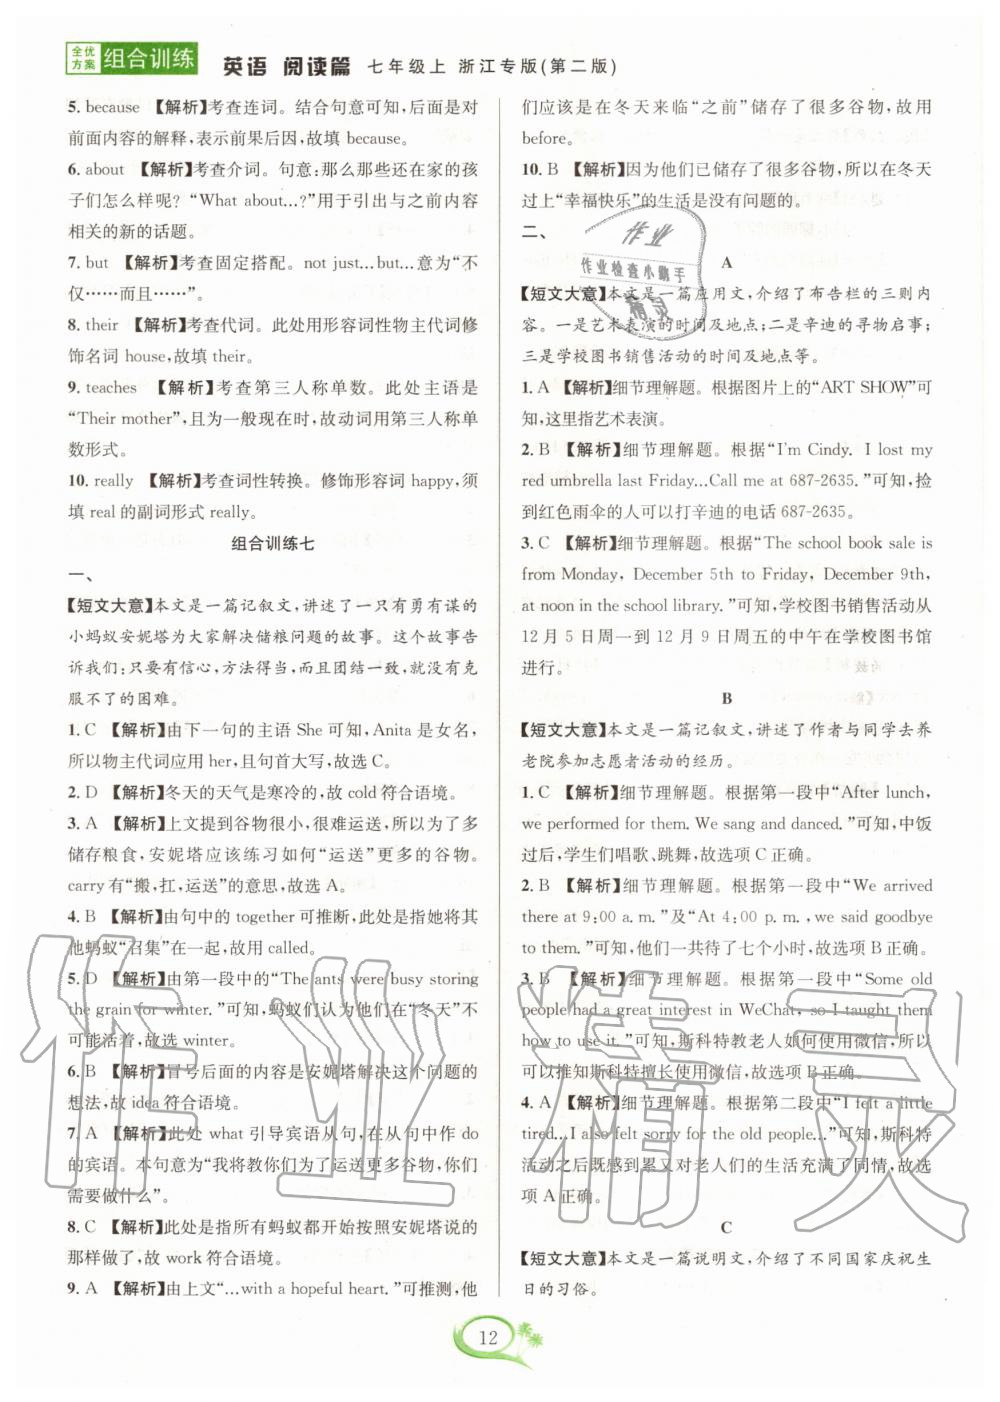 全优方案 组合训练 英语 阅读篇 七年级上 浙江专版(第二版)
5. because 【解析】考查连词。结合句意可知,后面是对
前面内容的解释,表示前果后因,故填 because。
6. about 【解析】考查介词。句意:那么那些还在家的孩
子们怎么样呢？“What about...?”用于引出与之前内容
相关的新的话题。
7. but 【解析】考查固定搭配。not just...but...意为“不
仅……而且……”。
8. their 【解析】考查代词。此处用形容词性物主代词修
饰名词 house,故填 their。
9. teaches 【解析】考查第三人称单数。此处主语是
“Their mother”,且为一般现在时,故动词用第三人称单
数形式。
10. really 【解析】考查词性转换。修饰形容词 happy,须
填 real 的副词形式 really。
组合训练七
一、
【短文大意】本文是一篇记叙文,讲述了一只有勇有谋的
小蚂蚁安妮塔为大家解决储粮问题的故事。这个故事告
诉我们:只要有信心,方法得当,而且团结一致,就没有克
服不了的困难。
1. C 【解析】由下一句的主语 She 可知,Anita 是女名,
所以物主代词应用 her,且句首大写,故选 C。
2. D 【解析】冬天的天气是寒冷的,故 cold 符合语境。
3. A 【解析】上文提到谷物很小,很难运送,所以为了多
储存粮食,安妮塔应该练习如何“运送”更多的谷物。
carry 有“搬,扛,运送”的意思,故选 A。
4. B 【解析】由句中的 together 可推断,此处是指她将其
他蚂蚁“召集”在一起,故用 called。
5. D 【解析】由第一段中的“The ants were busy storing
the grain for winter.”可知,蚂蚁们认为他们在“冬天”不
可能活着,故选 winter。
6. B 【解析】冒号后面的内容是安妮塔解决这个问题的
想法,故 idea 符合语境。
7. A 【解析】此处 what 引导宾语从句,在从句中作 do
的宾语。本句意为“我将教你们为了运送更多谷物,你们
需要做什么”。
8. C 【解析】此处是指所有蚂蚁都开始按照安妮塔说的
那样做了,故 work 符合语境。
9. A 【解析】由上文“...with a hopeful heart.”可推测,他
们应该是在冬天来临“之前”储存了很多谷物,故用
before。
10. B 【解析】因为他们已储存了很多谷物,所以在冬天
过上“幸福快乐”的生活是没有问题的。
二、
A
【短文大意】本文是一篇应用文,介绍了布告栏的三则内
容。一是艺术表演的时间及地点;二是辛迪的寻物启事;
三是学校图书销售活动的时间及地点等。
1. A 【解析】细节理解题。根据图片上的“ART SHOW”可
知,这里指艺术表演。
2. B 【解析】细节理解题。根据“I'm Cindy. I lost my
red umbrella last Friday...Call me at 687-2635.”可知,捡
到红色雨伞的人可以打辛迪的电话 687-2635。
3. C 【解析】细节理解题。根据“The school book sale is
from Monday, December 5th to Friday, December 9th,
at noon in the school library.”可知,学校图书销售活动从
12 月 5 日周一到 12 月 9 日周五的中午在学校图书馆
进行。
B
【短文大意】本文是一篇记叙文,讲述了作者与同学去养
老院参加志愿者活动的经历。
1. C 【解析】细节理解题。根据第一段中“After lunch,
we performed for them. We sang and danced.”可知,中饭
过后,学生们唱歌、跳舞,故选项 C 正确。
2. B 【解析】细节理解题。根据第一段中“We arrived
there at 9:00 a. m.”及“At 4:00 p. m., we said goodbye
to them.”可知,他们一共待了七个小时,故选项 B 正确。
3. B 【解析】细节理解题。根据第一段中“Some old
people had a great interest in WeChat, so I taught them
how to use it.”可知,斯科特教老人如何使用微信,所以
可以推知斯科特擅长使用微信,故选项 B 正确。
4. A 【解析】细节理解题。根据第二段中“I felt a little
tired...I also felt sorry for the old people...”可知,斯科特
活动之后既感到累又对老人们的生活充满了同情,故选
项 A 正确。
C
【短文大意】本文是一篇说明文,介绍了不同国家庆祝生
日的习俗。
12
作业
作业检查小助手
精灵
作业精灵